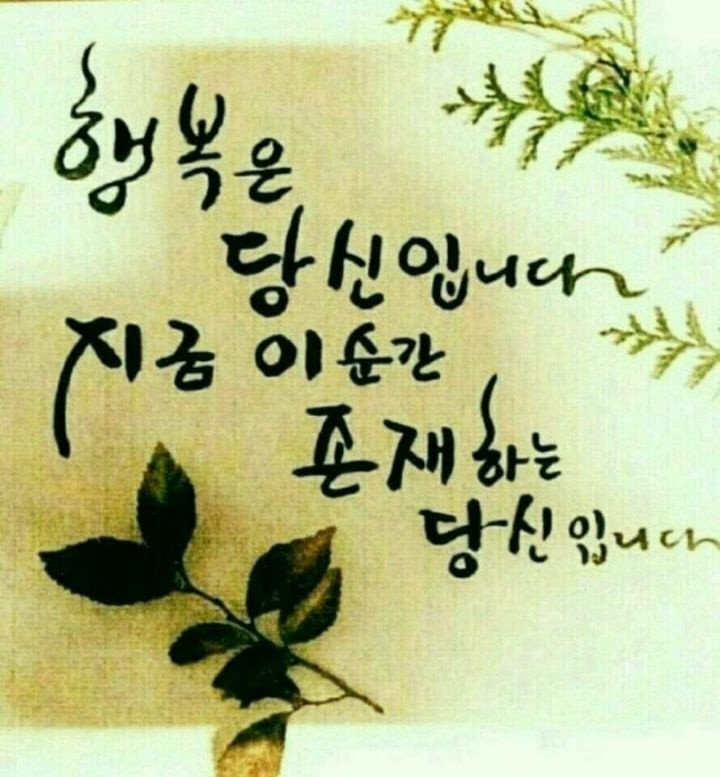 행복은
당신입니다
지금 이 순간
존재하는
당신입니다